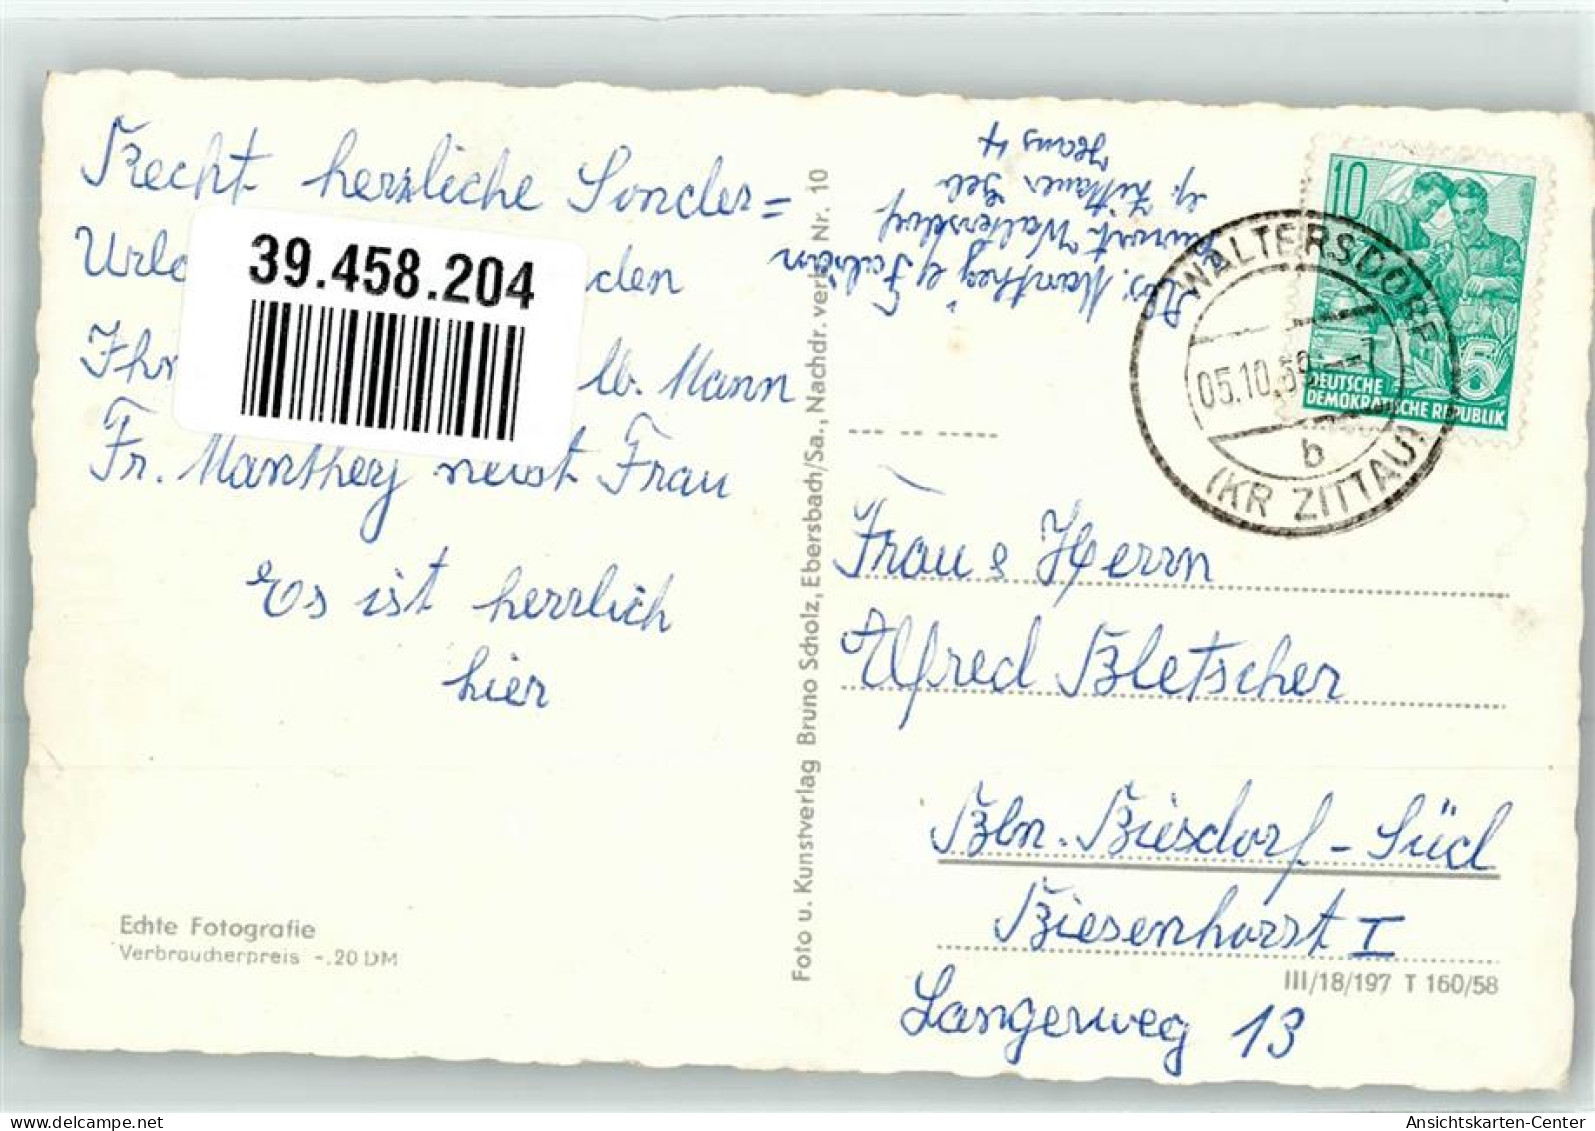 Recht herzliche Sonder=
Url den
39.458.204
Ihr lb. Mann
Fr. Manthey nebst Frau
Es ist herrlich
hier
Echte Fotografie
Verbraucherpreis -.20 DM
Foto u. Kunstverlag Bruno Scholz, Ebersbach/Sa., Nachdr. verb. Nr. 10
Abs. Manthey
Waltersdorf
Zittauer Geb
Haus 4
10
DEUTSCHE
DEMOKRATISCHE REPUBLIK
5
WALTERSDORF
05.10.59
b
(KR ZITTAU)
Frau & Herrn
Alfred Bletscher
Bln. Biesdorf-Süd
Biesenhorst I
III/18/197 T 160/58
Langerweg 13
Ansichtskarten-Center